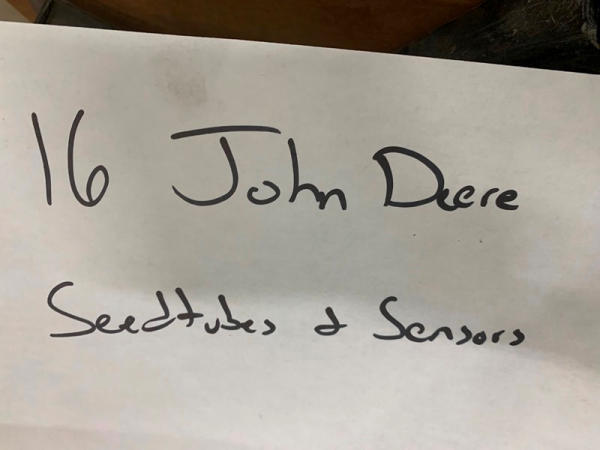 16 John Deere
Seedtubes & Sensors